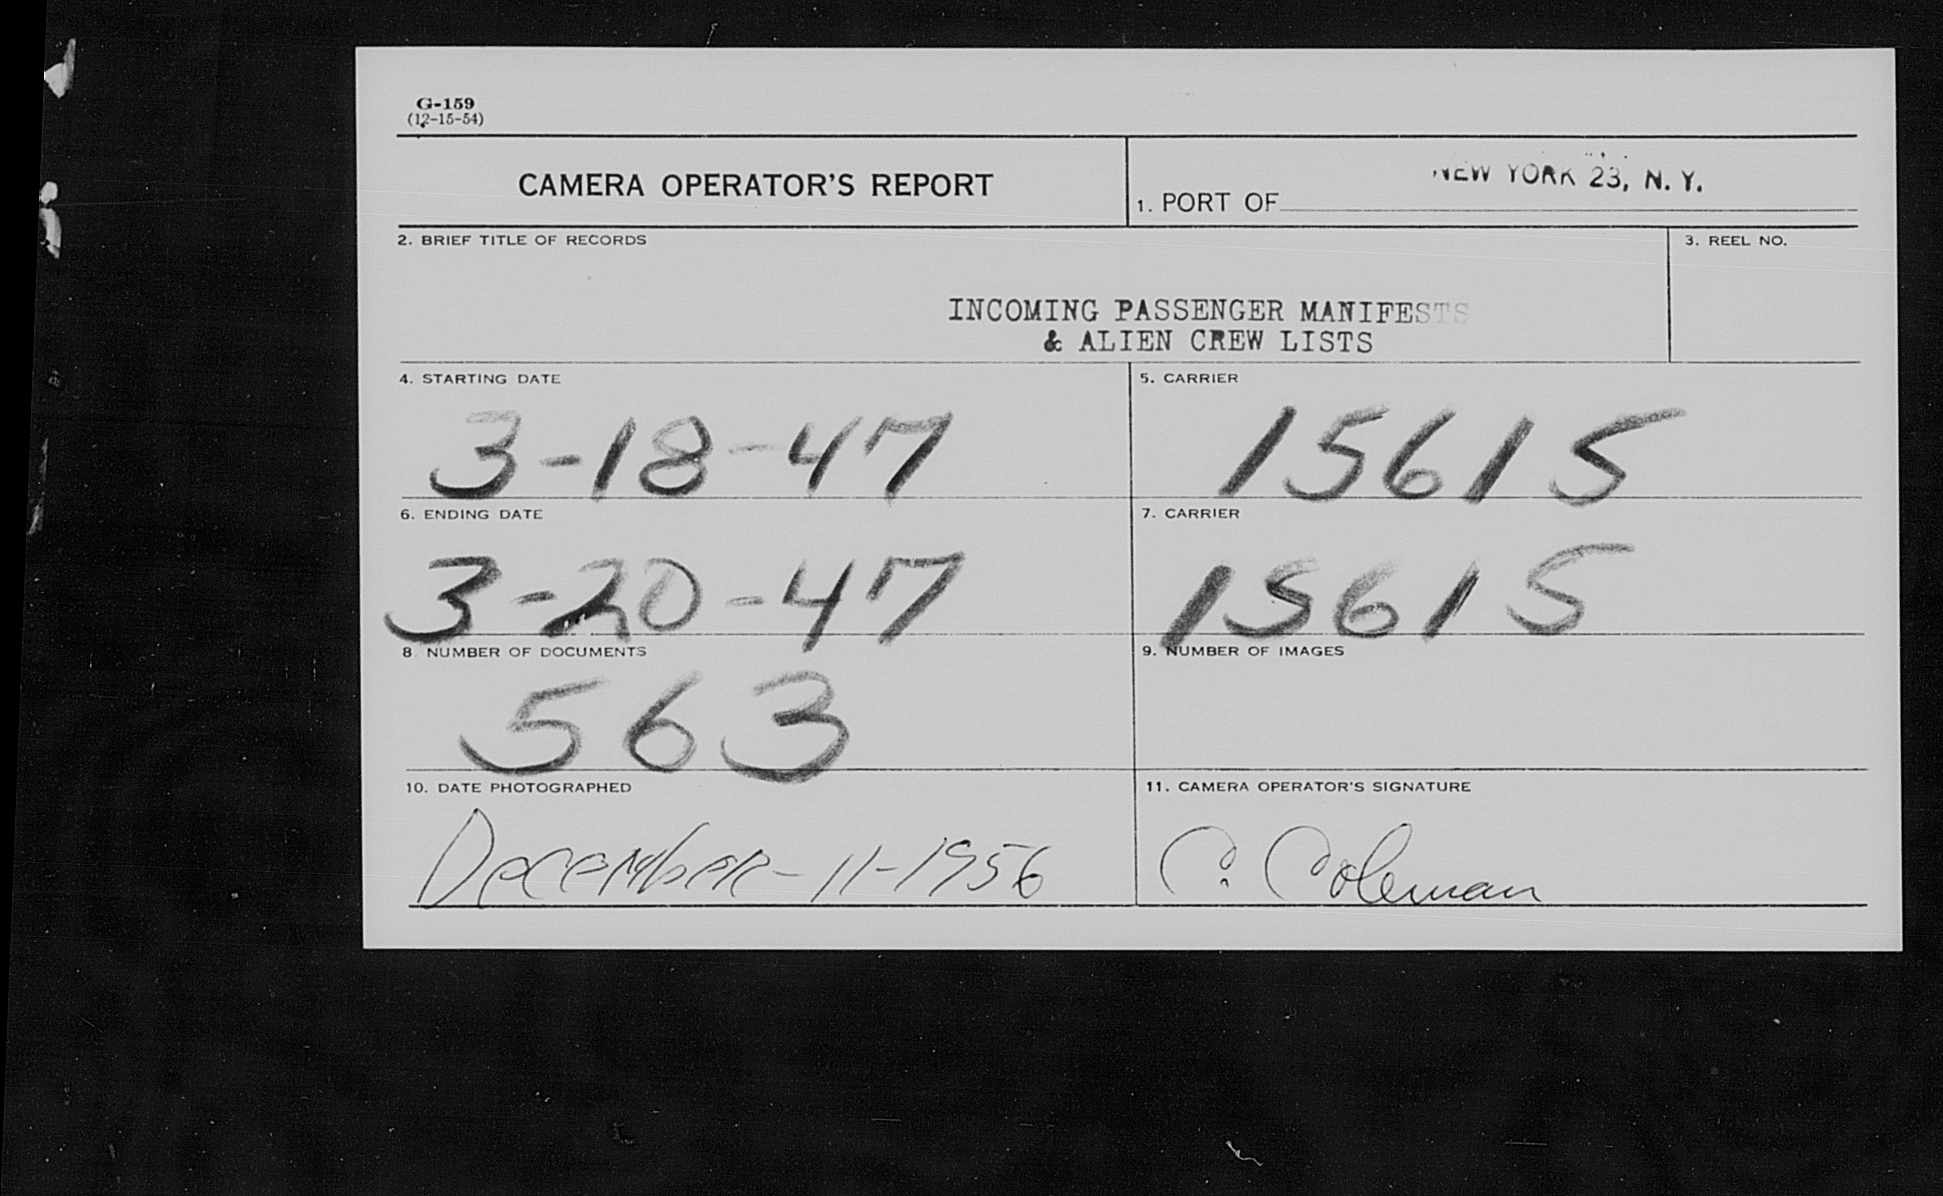 G-159
(12-15-54)
CAMERA OPERATOR'S REPORT
1. PORT OF NEW YORK 23, N. Y.
2. BRIEF TITLE OF RECORDS
3. REEL NO.
INCOMING PASSENGER MANIFESTS
& ALIEN CREW LISTS
4. STARTING DATE
5. CARRIER
3-18-47
15615
6. ENDING DATE
7. CARRIER
3-20-47
15615
8. NUMBER OF DOCUMENTS
9. NUMBER OF IMAGES
563
10. DATE PHOTOGRAPHED
11. CAMERA OPERATOR'S SIGNATURE
December-11-1956
C. Coleman